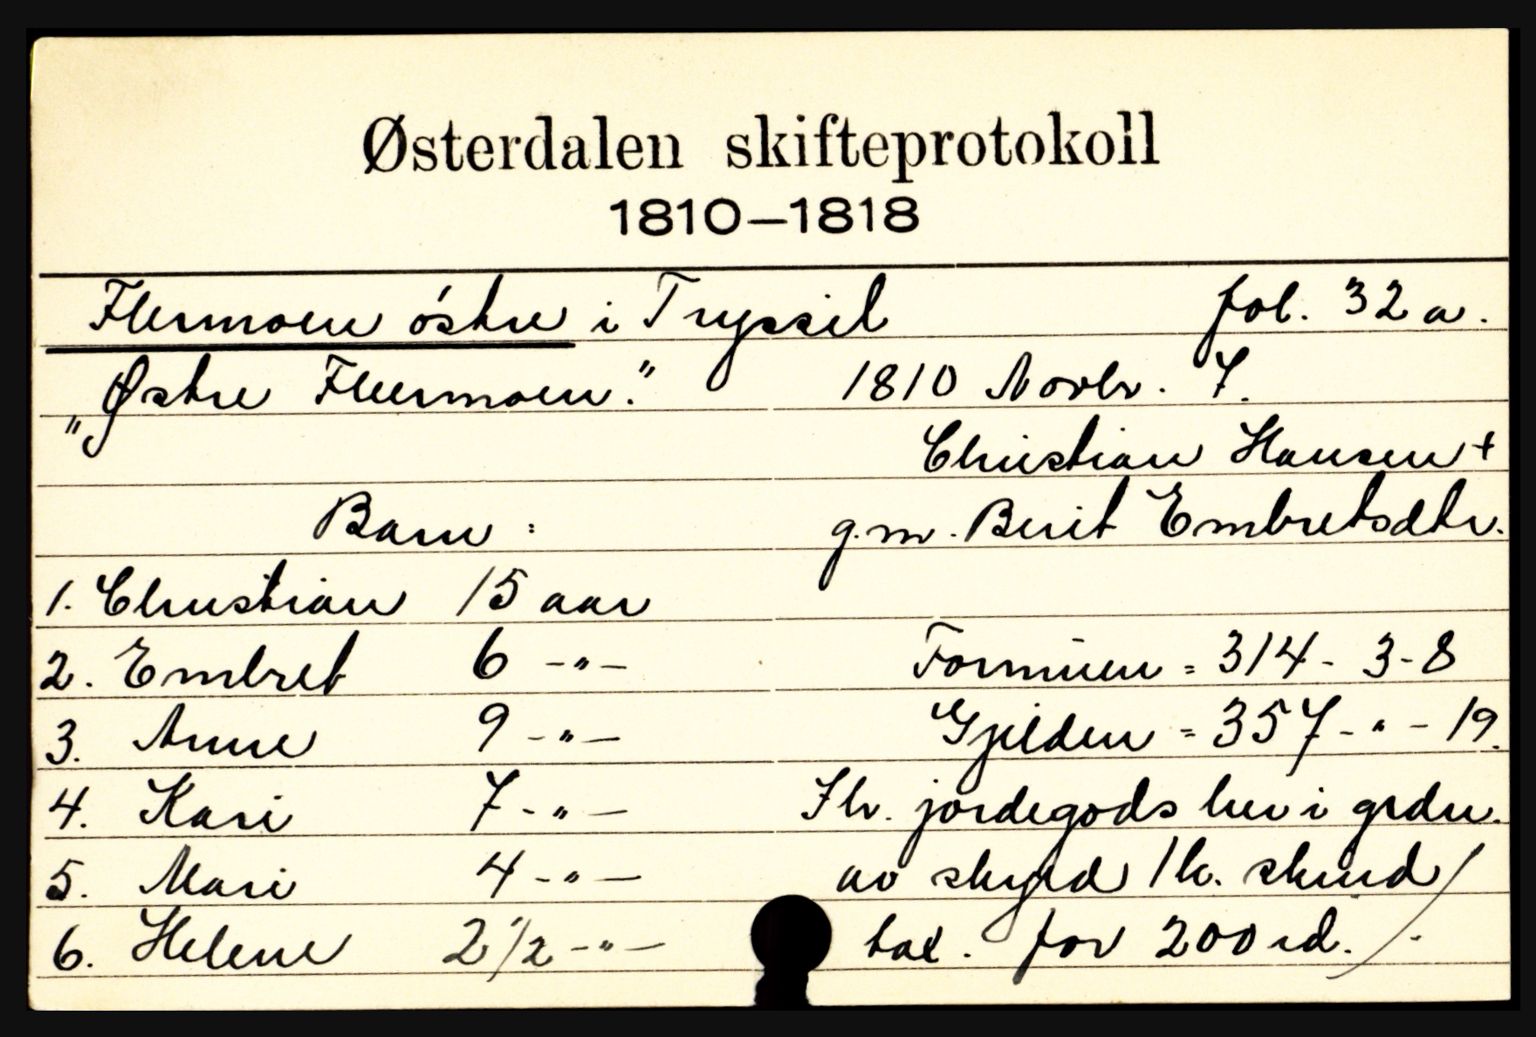 Østerdalen skifteprotokoll
1810–1818
Flermoen østre i Tryssil fol. 32 a.
"Østre Fleermoen." 1810 Novbr. 7.
Christian Hansen +
Barn: g.m. Berit Embretsdtr.
1. Christian 15 aar
2. Embret 6 -"- Formuen = 314 - 3 - 8
3. Anne 9 -"- Gjelden = 357 - " - 19.
4. Kari 7 -"- Ihv. jordegods her i grdn.
5. Mari 4 -"- av skyld 1 h. skind
6. Helene 2 1/2 -"- tax. for 200 rd.